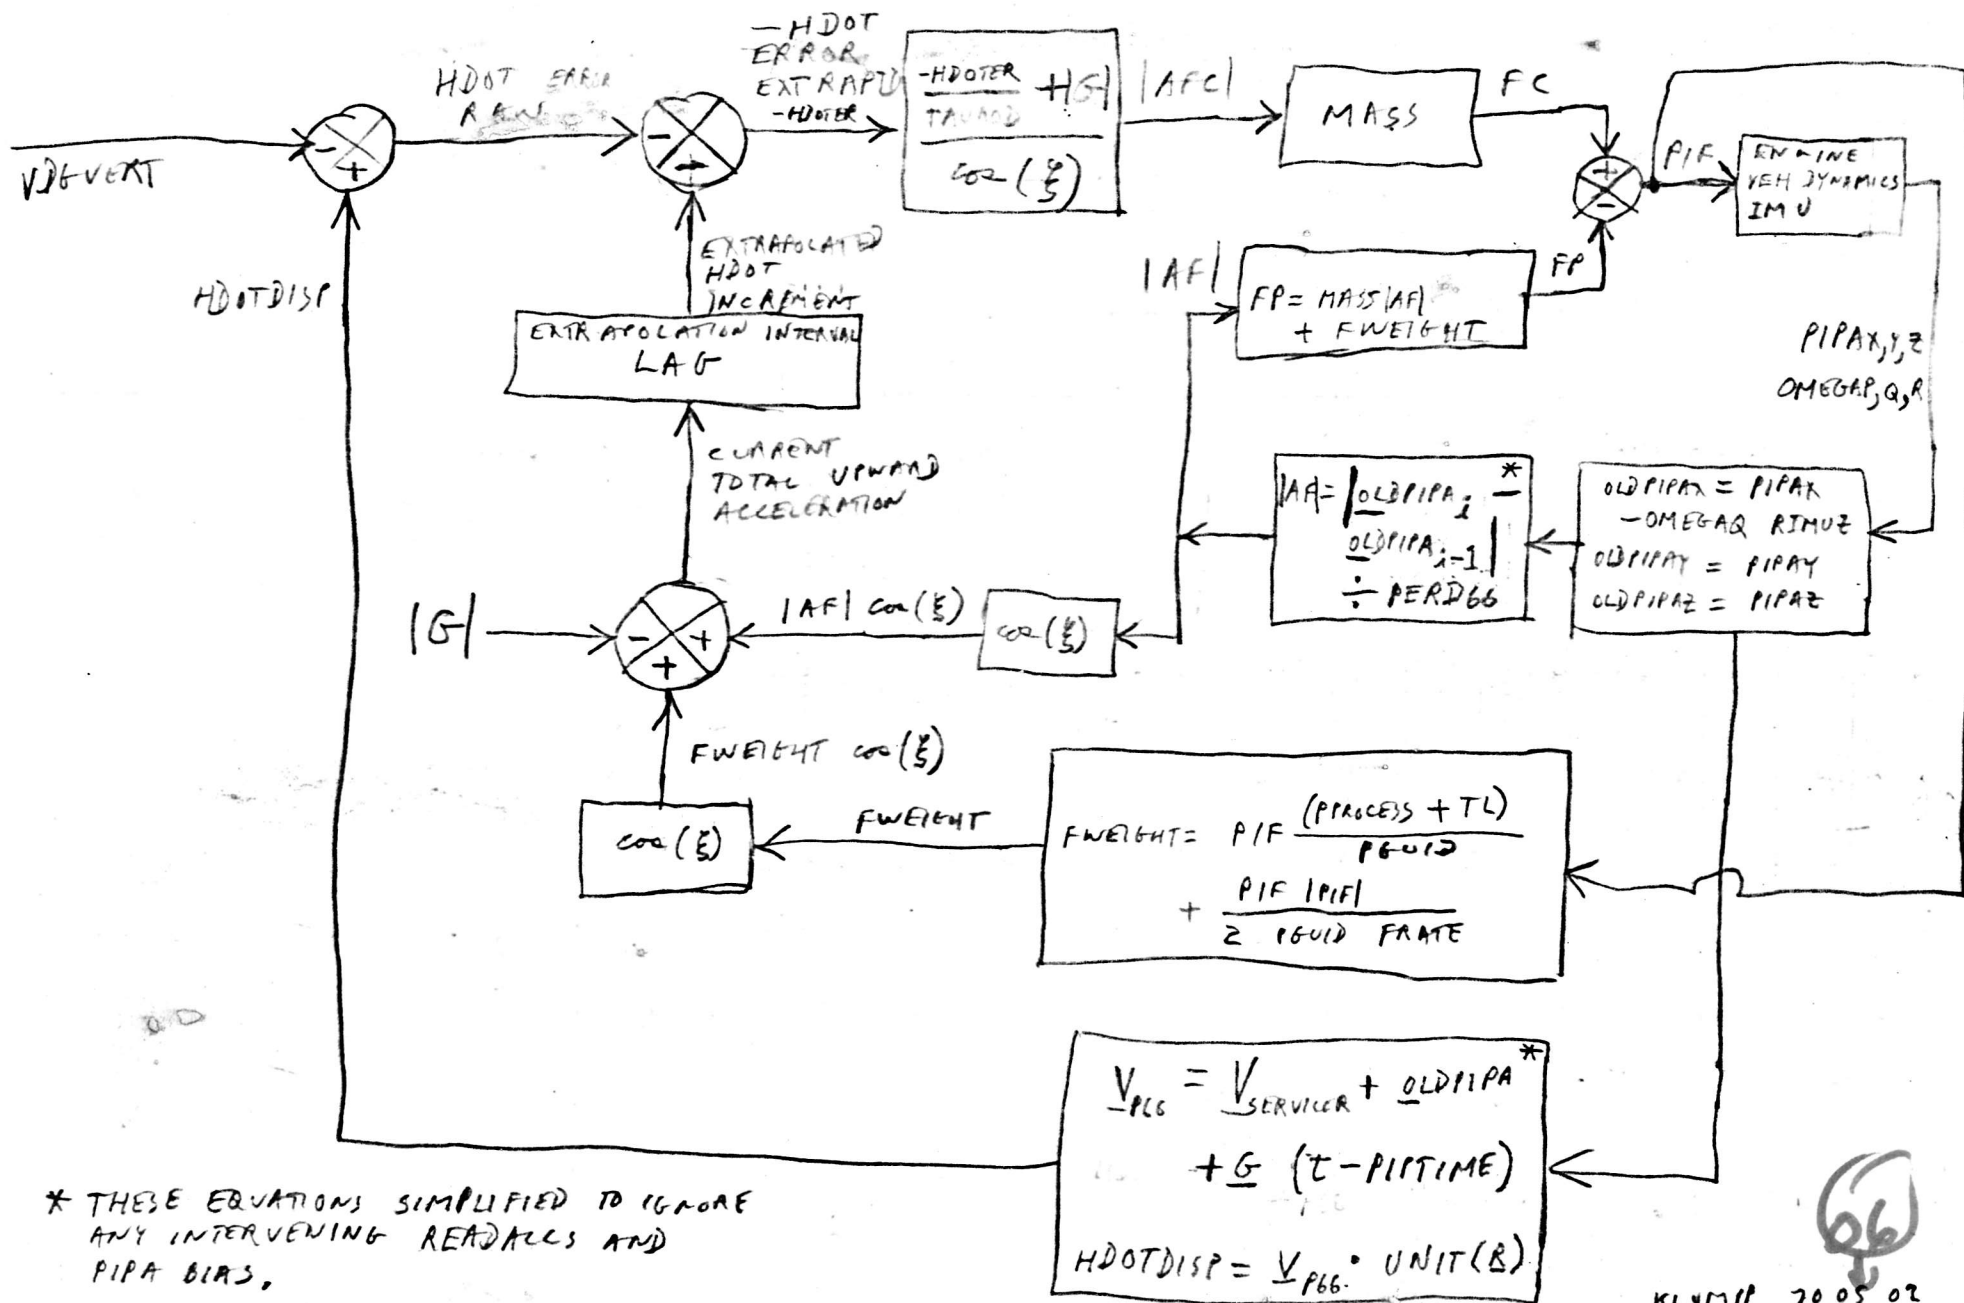 VDGVERT
-
+
HDOT ERROR
-
+
-HDOT
ERROR
EXTRAPTD
-HDOTER
-HDOTER
TAUROD
+|G|
cos(ξ)
|AFC|
MASS
FC
+
-
PIF
ENGINE
VEH DYNAMICS
IMU
HDOTDISP
EXTRAPOLATED
HDOT
INCREMENT
EXTRAPOLATION INTERVAL
LAG
|AF|
FP = MASS|AF|
+ FWEIGHT
FP
PIPAX,Y,Z
OMEGAP,Q,R
CURRENT
TOTAL UPWARD
ACCELERATION
|AF|= |OLDPIPAi - *
OLDPIPAi-1|
÷ PERDGG
OLDPIPAX = PIPAX
-OMEGAQ RIMUZ
OLDPIPAY = PIPAY
OLDPIPAZ = PIPAZ
|G|
-
+
+
|AF| cos(ξ)
cos(ξ)
FWEIGHT cos(ξ)
cos(ξ)
FWEIGHT
FWEIGHT = PIF (PPROCESS + TL)
PGUID
+ PIF |PIF|
2 PGUID FRATE
V PGG = V SERVICER + OLDPIPA *
+ G (t - PIPTIME)
HDOTDISP = V PGG · UNIT(R)
* THESE EQUATIONS SIMPLIFIED TO IGNORE
ANY INTERVENING READACCS AND
PIPA BIAS.
06
KLUMPP 20 05 02